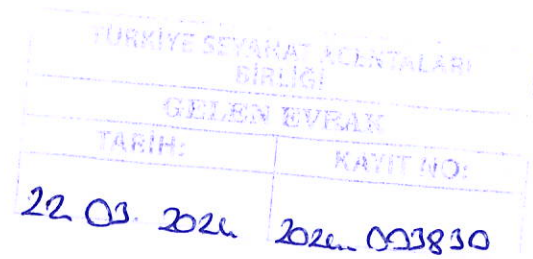 TÜRKİYE SEYAHAT ACENTALARI
BİRLİĞİ
GELEN EVRAK
TARİH: KAYIT NO:
22 03. 2024 2024- 003830